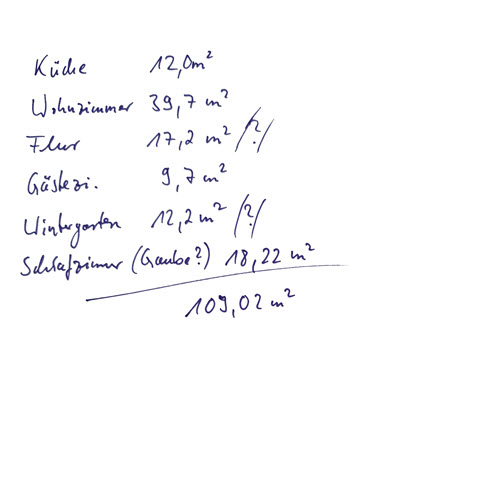 Küche 12,0m²
Wohnzimmer 39,7 m²
Flur 17,2 m² /?/
Gästezi. 9,7 m²
Wintergarten 12,2 m² /?/
Schlafzimmer (Gaube?) 18,22 m²
109,02 m²